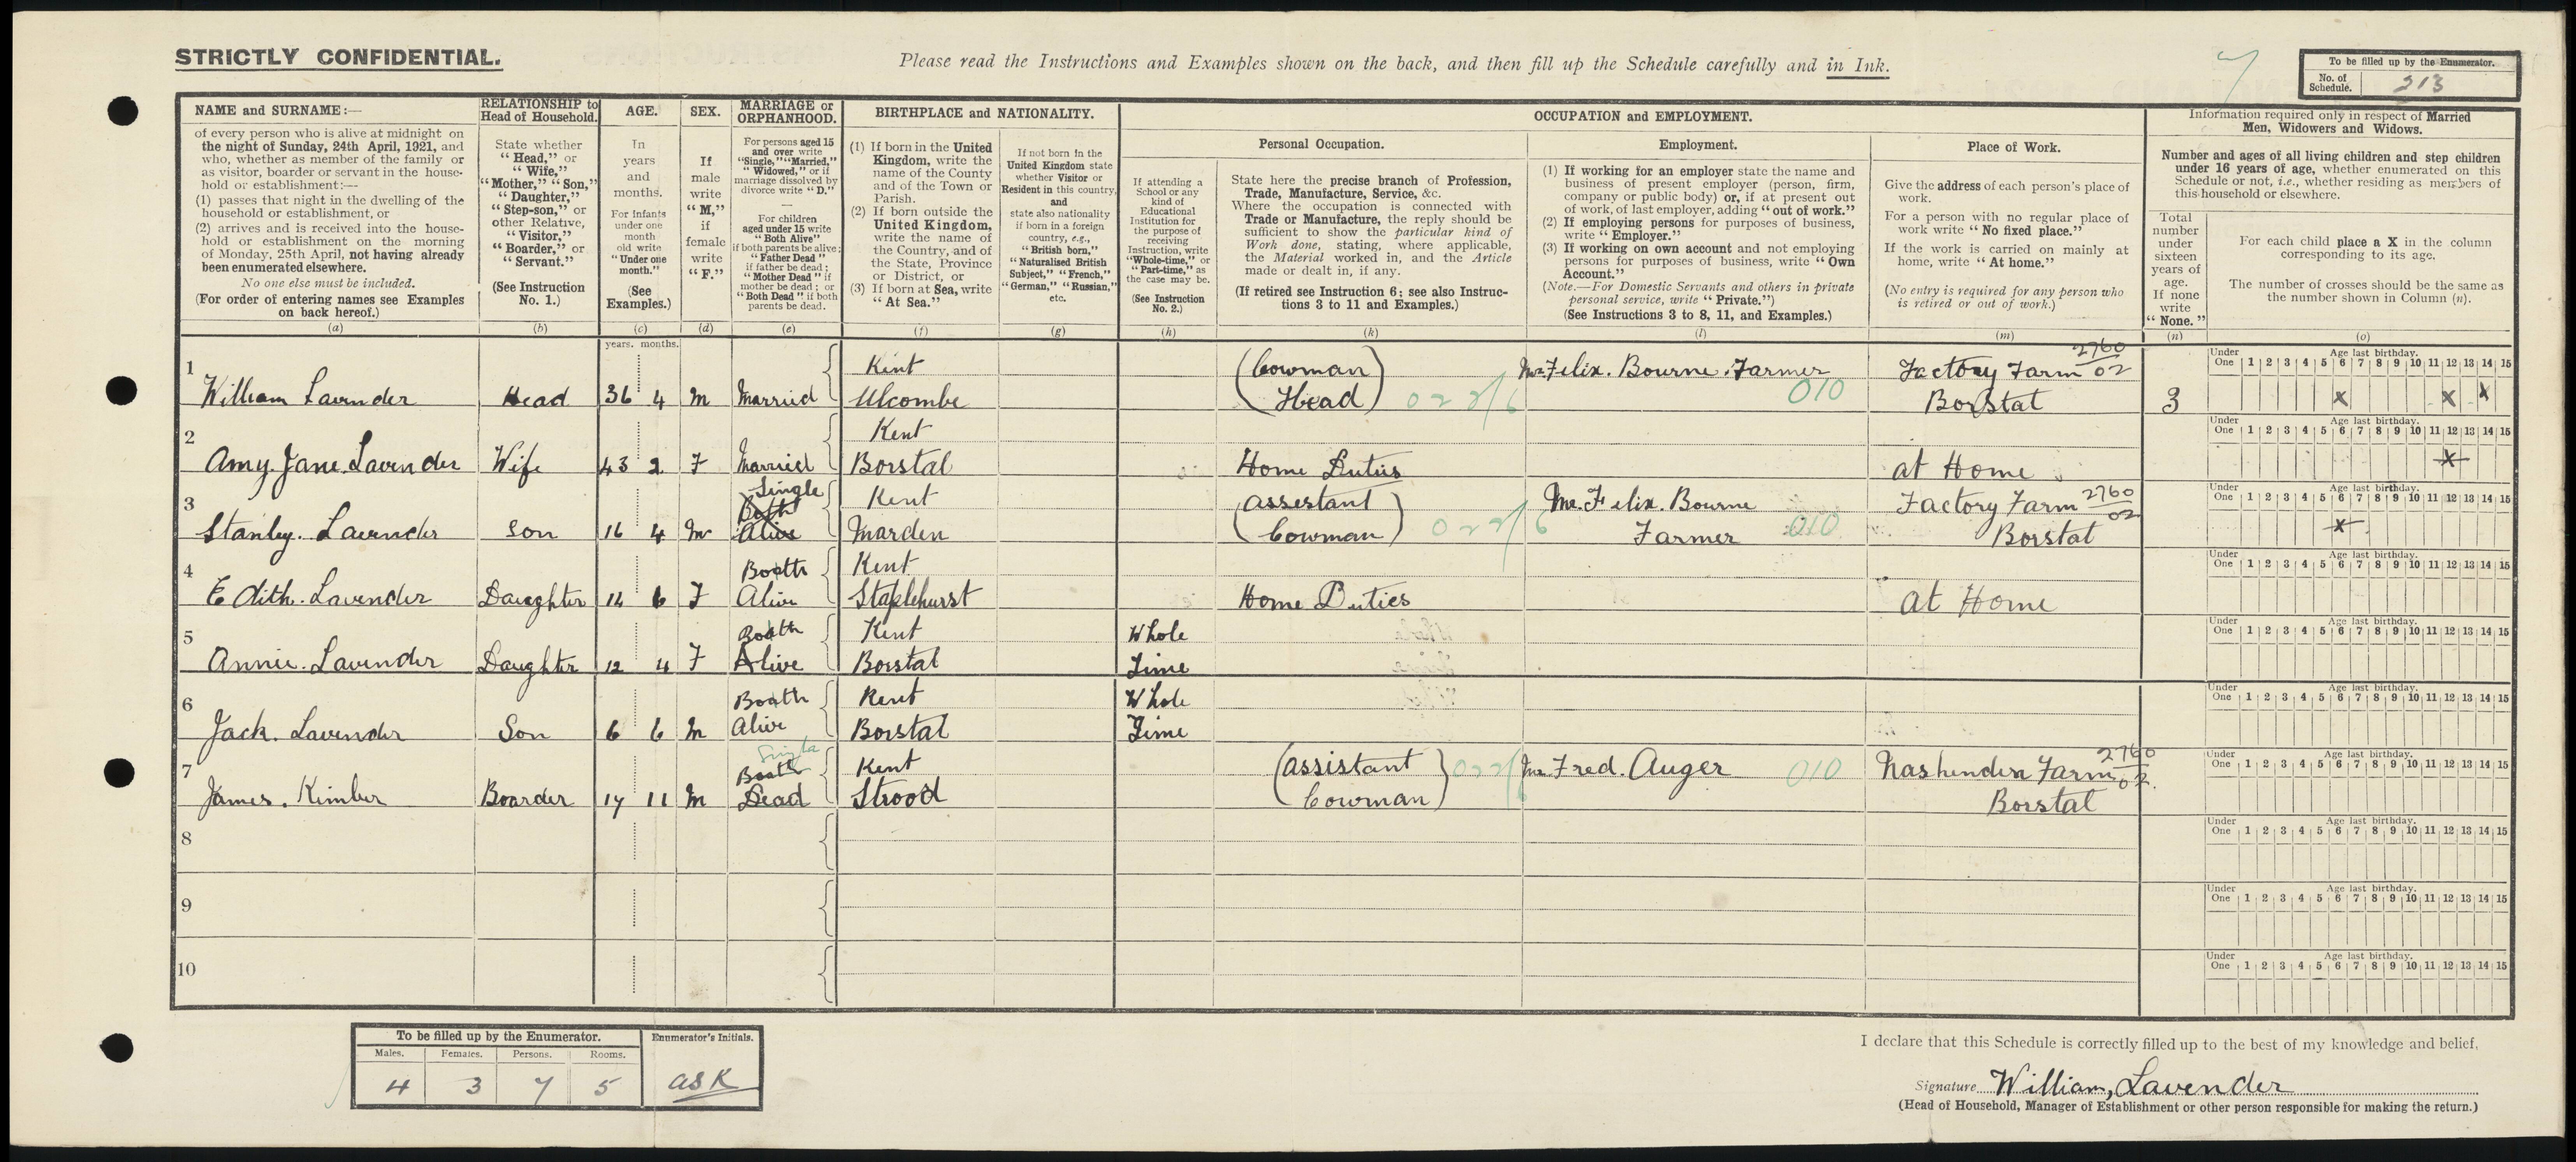 STRICTLY CONFIDENTIAL.
Please read the Instructions and Examples shown on the back, and then fill up the Schedule carefully and in Ink.
7
To be filled up by the Enumerator.
No. of Schedule. 213
NAME and SURNAME:—
of every person who is alive at midnight on
the night of Sunday, 24th April, 1921, and
who, whether as member of the family or
as visitor, boarder or servant in the house-
hold or establishment:—
(1) passes that night in the dwelling of the
household or establishment, or
(2) arrives and is received into the house-
hold or establishment on the morning
of Monday, 25th April, not having already
been enumerated elsewhere.
No one else must be included.
(For order of entering names see Examples
on back hereof.)
(a)
RELATIONSHIP to
Head of Household.
State whether
"Head," or
"Wife,"
"Mother," "Son,"
"Daughter,"
"Step-son," or
other Relative,
"Visitor,"
"Boarder," or
"Servant."
(See Instruction
No. 1.)
(b)
AGE.
In
years
and
months.
For infants
under one
month
old write
"Under one
month."
(See
Examples.)
(c)
SEX.
If
male
write
"M,"
if
female
write
"F."
(d)
MARRIAGE or
ORPHANHOOD.
For persons aged 15
and over write
"Single," "Married,"
"Widowed," or if
marriage dissolved by
divorce write "D."
For children
aged under 15 write
"Both Alive"
if both parents be alive;
"Father Dead"
if father be dead;
"Mother Dead" if
mother be dead; or
"Both Dead" if both
parents be dead.
(e)
BIRTHPLACE and NATIONALITY.
(1) If born in the United
Kingdom, write the
name of the County
and of the Town or
Parish.
(2) If born outside the
United Kingdom,
write the name of
the Country, and of
the State, Province
or District, or
(3) If born at Sea, write
"At Sea."
(f)
If not born in the
United Kingdom state
whether Visitor or
Resident in this country,
and
state also nationality
if born in a foreign
country, e.g.,
"British born,"
"Naturalised British
Subject," "French,"
"German," "Russian,"
etc.
(g)
OCCUPATION and EMPLOYMENT.
If attending a
School or any
kind of
Educational
Institution for
the purpose of
receiving
Instruction, write
"Whole-time," or
"Part-time," as
the case may be.
(See Instruction
No. 2.)
(h)
Personal Occupation.
State here the precise branch of Profession,
Trade, Manufacture, Service, &c.
Where the occupation is connected with
Trade or Manufacture, the reply should be
sufficient to show the particular kind of
Work done, stating, where applicable,
the Material worked in, and the Article
made or dealt in, if any.
(If retired see Instruction 6; see also Instruc-
tions 3 to 11 and Examples.)
(k)
Employment.
(1) If working for an employer state the name and
business of present employer (person, firm,
company or public body) or, if at present out
of work, of last employer, adding "out of work."
(2) If employing persons for purposes of business,
write "Employer."
(3) If working on own account and not employing
persons for purposes of business, write "Own
Account."
(Note.—For Domestic Servants and others in private
personal service, write "Private.")
(See Instructions 3 to 8, 11, and Examples.)
(l)
Place of Work.
Give the address of each person's place of
work.
For a person with no regular place of
work write "No fixed place."
If the work is carried on mainly at
home, write "At home."
(No entry is required for any person who
is retired or out of work.)
(m)
Information required only in respect of Married
Men, Widowers and Widows.
Number and ages of all living children and step children
under 16 years of age, whether enumerated on this
Schedule or not, i.e., whether residing as members of
this household or elsewhere.
Total
number
under
sixteen
years of
age.
If none
write
"None."
(n)
For each child place a X in the column
corresponding to its age.
The number of crosses should be the same as
the number shown in Column (n).
(o)
years. months.
1 William Lavender Head 36 4 M Married Kent Ulcombe (Cowman Head) 022/6 Mr Felix. Bourne. Farmer 010 Factory Farm Borstat 2760/02 3
Under One 1 2 3 4 5 6 7 8 9 10 11 12 13 14 15 Age last birthday.
x x x
2 Amy. Jane. Lavender Wife 43 2 F Married Kent Borstal Home Duties at Home
Under One 1 2 3 4 5 6 7 8 9 10 11 12 13 14 15 Age last birthday.
x
3 Stanley. Lavender Son 16 4 M Single Both Alive Kent Marden (assestant Cowman) 022/6 Mr. Felix. Bourne Farmer 010 Factory Farm Borstat 2760/02
Under One 1 2 3 4 5 6 7 8 9 10 11 12 13 14 15 Age last birthday.
x
4 Edith. Lavender Daughter 14 6 F Boath Alive Kent Staplehurst Home Duties at Home
Under One 1 2 3 4 5 6 7 8 9 10 11 12 13 14 15 Age last birthday.
5 Annie. Lavender Daughter 12 4 F Boath Alive Kent Borstal Whole Time
Under One 1 2 3 4 5 6 7 8 9 10 11 12 13 14 15 Age last birthday.
6 Jack. Lavender Son 6 6 M Boath Alive Kent Borstal Whole Time
Under One 1 2 3 4 5 6 7 8 9 10 11 12 13 14 15 Age last birthday.
7 James. Kimber Boarder 17 11 M Single Boath Dead Kent Strood (assistant Cowman) 022/6 Mr Fred. Auger 010 Nashenden Farm Borstal 2760/02.
Under One 1 2 3 4 5 6 7 8 9 10 11 12 13 14 15 Age last birthday.
8
Under One 1 2 3 4 5 6 7 8 9 10 11 12 13 14 15 Age last birthday.
9
Under One 1 2 3 4 5 6 7 8 9 10 11 12 13 14 15 Age last birthday.
10
Under One 1 2 3 4 5 6 7 8 9 10 11 12 13 14 15 Age last birthday.
To be filled up by the Enumerator.
Males. Females. Persons. Rooms.
4 3 7 5
Enumerator's Initials.
ASK
I declare that this Schedule is correctly filled up to the best of my knowledge and belief,
Signature William, Lavender
(Head of Household, Manager of Establishment or other person responsible for making the return.)